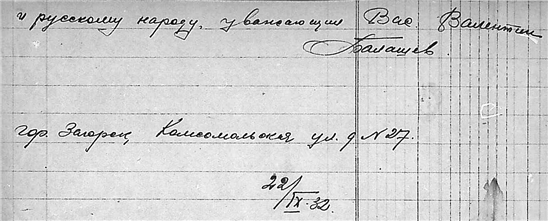 и русскому народу, уважающий Вас. Валентин
Балашев
гор. Загорск Комсомольская ул. д N 27.
22/IX-32.